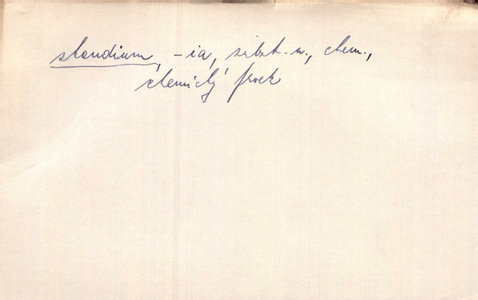 skandium, -ia, subst. n., chem.,
chemický prvok